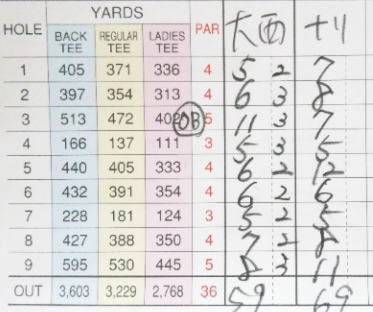 HOLE YARDS PAR 大西 十川
BACK TEE REGULAR TEE LADIES TEE
1 405 371 336 4 5 2 7
2 397 354 313 4 6 3 8
3 513 472 402 OB 5 11 3 7
4 166 137 111 3 5 3 5
5 440 405 333 4 6 2 12
6 432 391 354 4 6 2 6
7 228 181 124 3 5 2 5
8 427 388 350 4 7 2 8
9 595 530 445 5 8 3 11
OUT 3,603 3,229 2,768 36 59 69